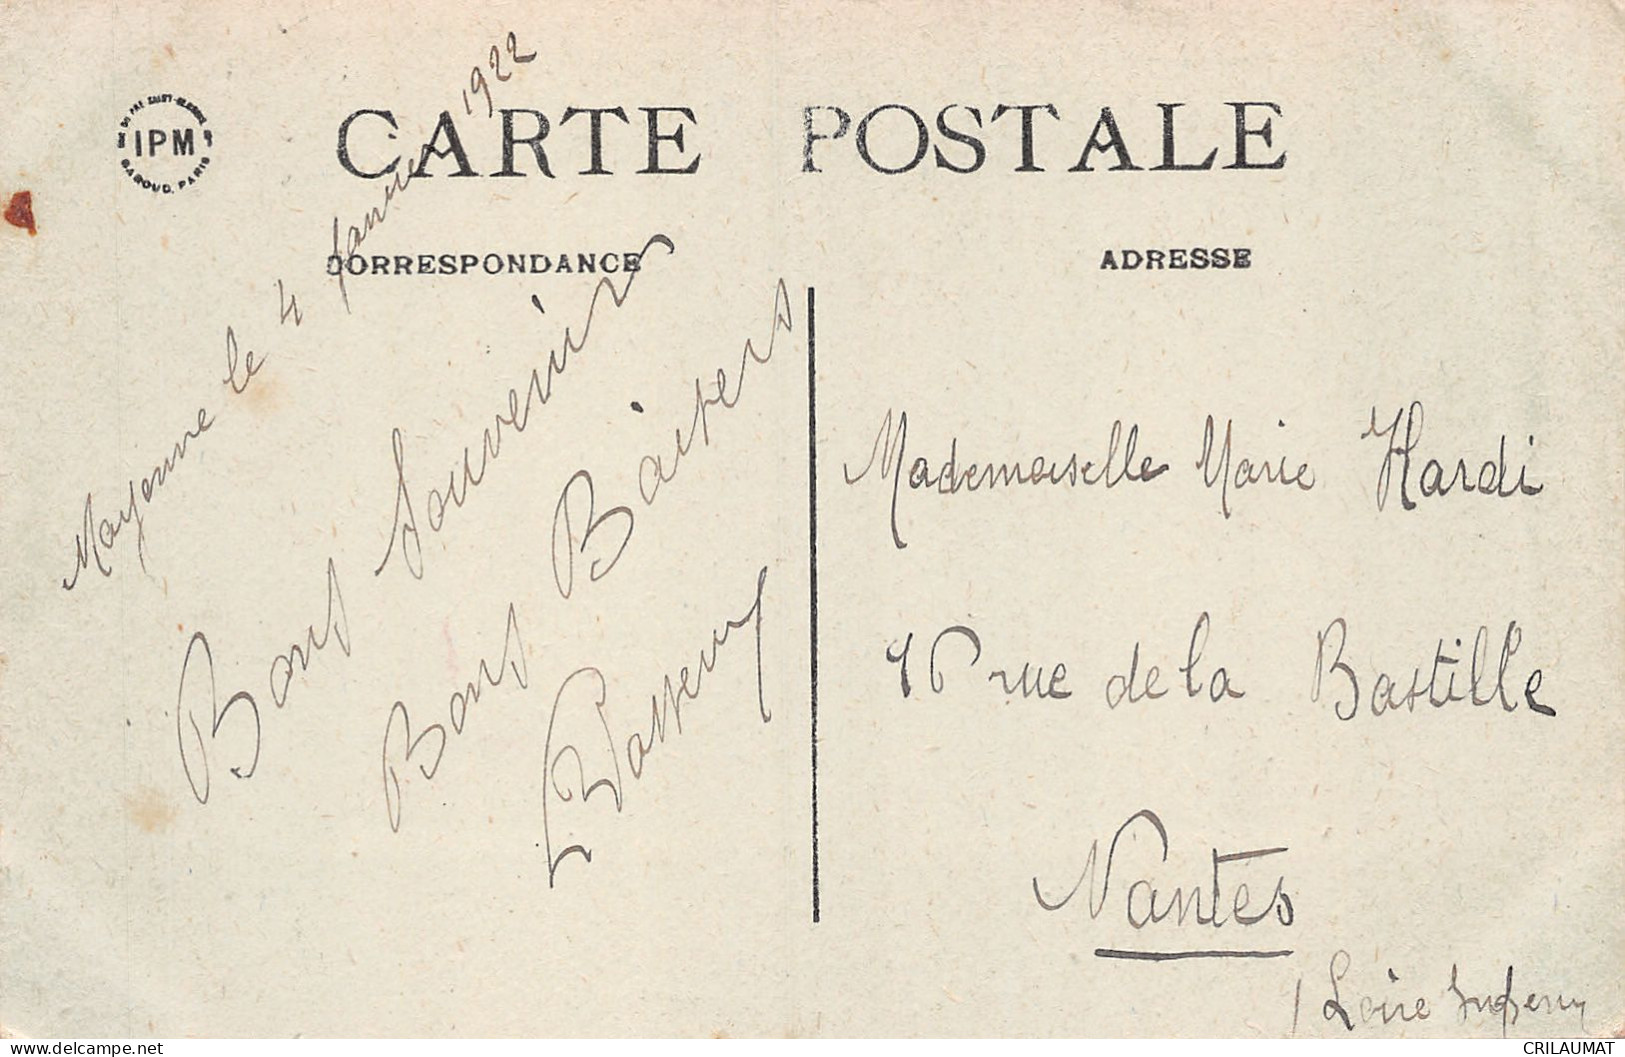 IPM
CARTE POSTALE
CORRESPONDANCE
ADRESSE
Mayenne le 4 Janvier 1922
Bons Souvenirs
Bons Baisers
Mademoiselle Marie Hardi
16 rue de la Bastille
Nantes
Loire
delcampe.net
CRILAUMAT